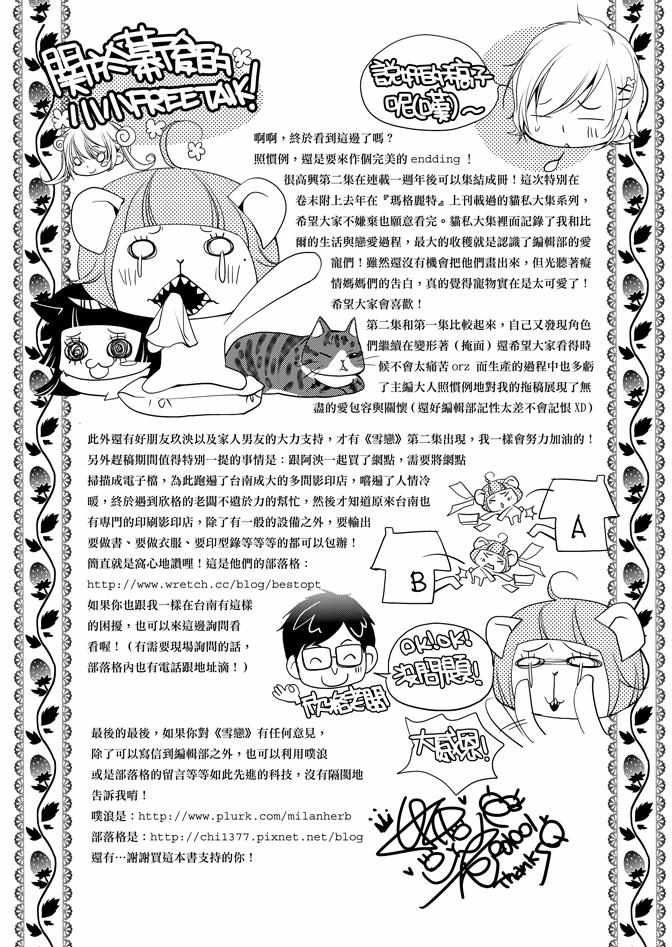 關於幕後的
小小FREE TALK!
說好的稿子
呢(口幕)~
啊啊，終於看到這邊了嗎？
照慣例，還是要來作個完美的endding！
很高興第二集在連載一週年後可以集結成冊！這次特別在
卷末附上去年在『瑪格麗特』上刊載過的貓私大集系列，
希望大家不嫌棄也願意看完。貓私大集裡面記錄了我和比
爾的生活與戀愛過程，最大的收穫就是認識了編輯部的愛
寵們！雖然還沒有機會把他們畫出來，但光聽著癡
情媽媽們的告白，真的覺得寵物實在是太可愛了！
希望大家會喜歡！
第二集和第一集比較起來，自己又發現角色
們繼續在變形著（掩面）還希望大家看得時
候不會太痛苦orz 而生產的過程中也多虧
了主編大人照慣例地對我的拖稿展現了無
盡的愛包容與關懷（還好編輯部記性太差不會記恨XD）
此外還有好朋友玖泱以及家人男友的大力支持，才有《雪戀》第二集出現，我一樣會努力加油的！
另外趕稿期間值得特別一提的事情是：跟阿泱一起買了網點，需要將網點
掃描成電子檔，為此跑遍了台南成大的多間影印店，嚐遍了人情冷
暖，終於遇到欣格的老闆不遺於力的幫忙，然後才知道原來台南也
有專門的印刷影印店，除了有一般的設備之外，要輸出
要做書、要做衣服、要印型錄等等等的都可以包辦！
簡直就是窩心地讚哩！這是他們的部落格：
http://www.wretch.cc/blog/bestopt
如果你也跟我一樣在台南有這樣
的困擾，也可以來這邊詢問看
看喔！（有需要現場詢問的話，
部落格內也有電話跟地址滴！）
A
B
OK!OK!
沒問題！
欣格老闆
大感恩！
最後的最後，如果你對《雪戀》有任何意見，
除了可以寫信到編輯部之外，也可以利用噗浪
或是部落格的留言等等如此先進的科技，沒有隔閡地
告訴我唷！
噗浪是：http://www.plurk.com/milanherb
部落格是：http://chi1377.pixnet.net/blog
還有…謝謝買這本書支持的你！
Thanks